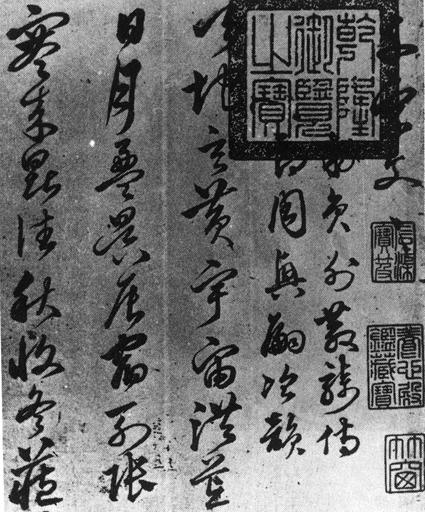 千字文
乾隆御覽之寶
石渠寶笈
養心殿鑑藏寶
竹窗
員外散騎侍
郎周興嗣次韻
天地玄黃宇宙洪荒
日月盈昃辰宿列張
寒來暑往秋收冬藏